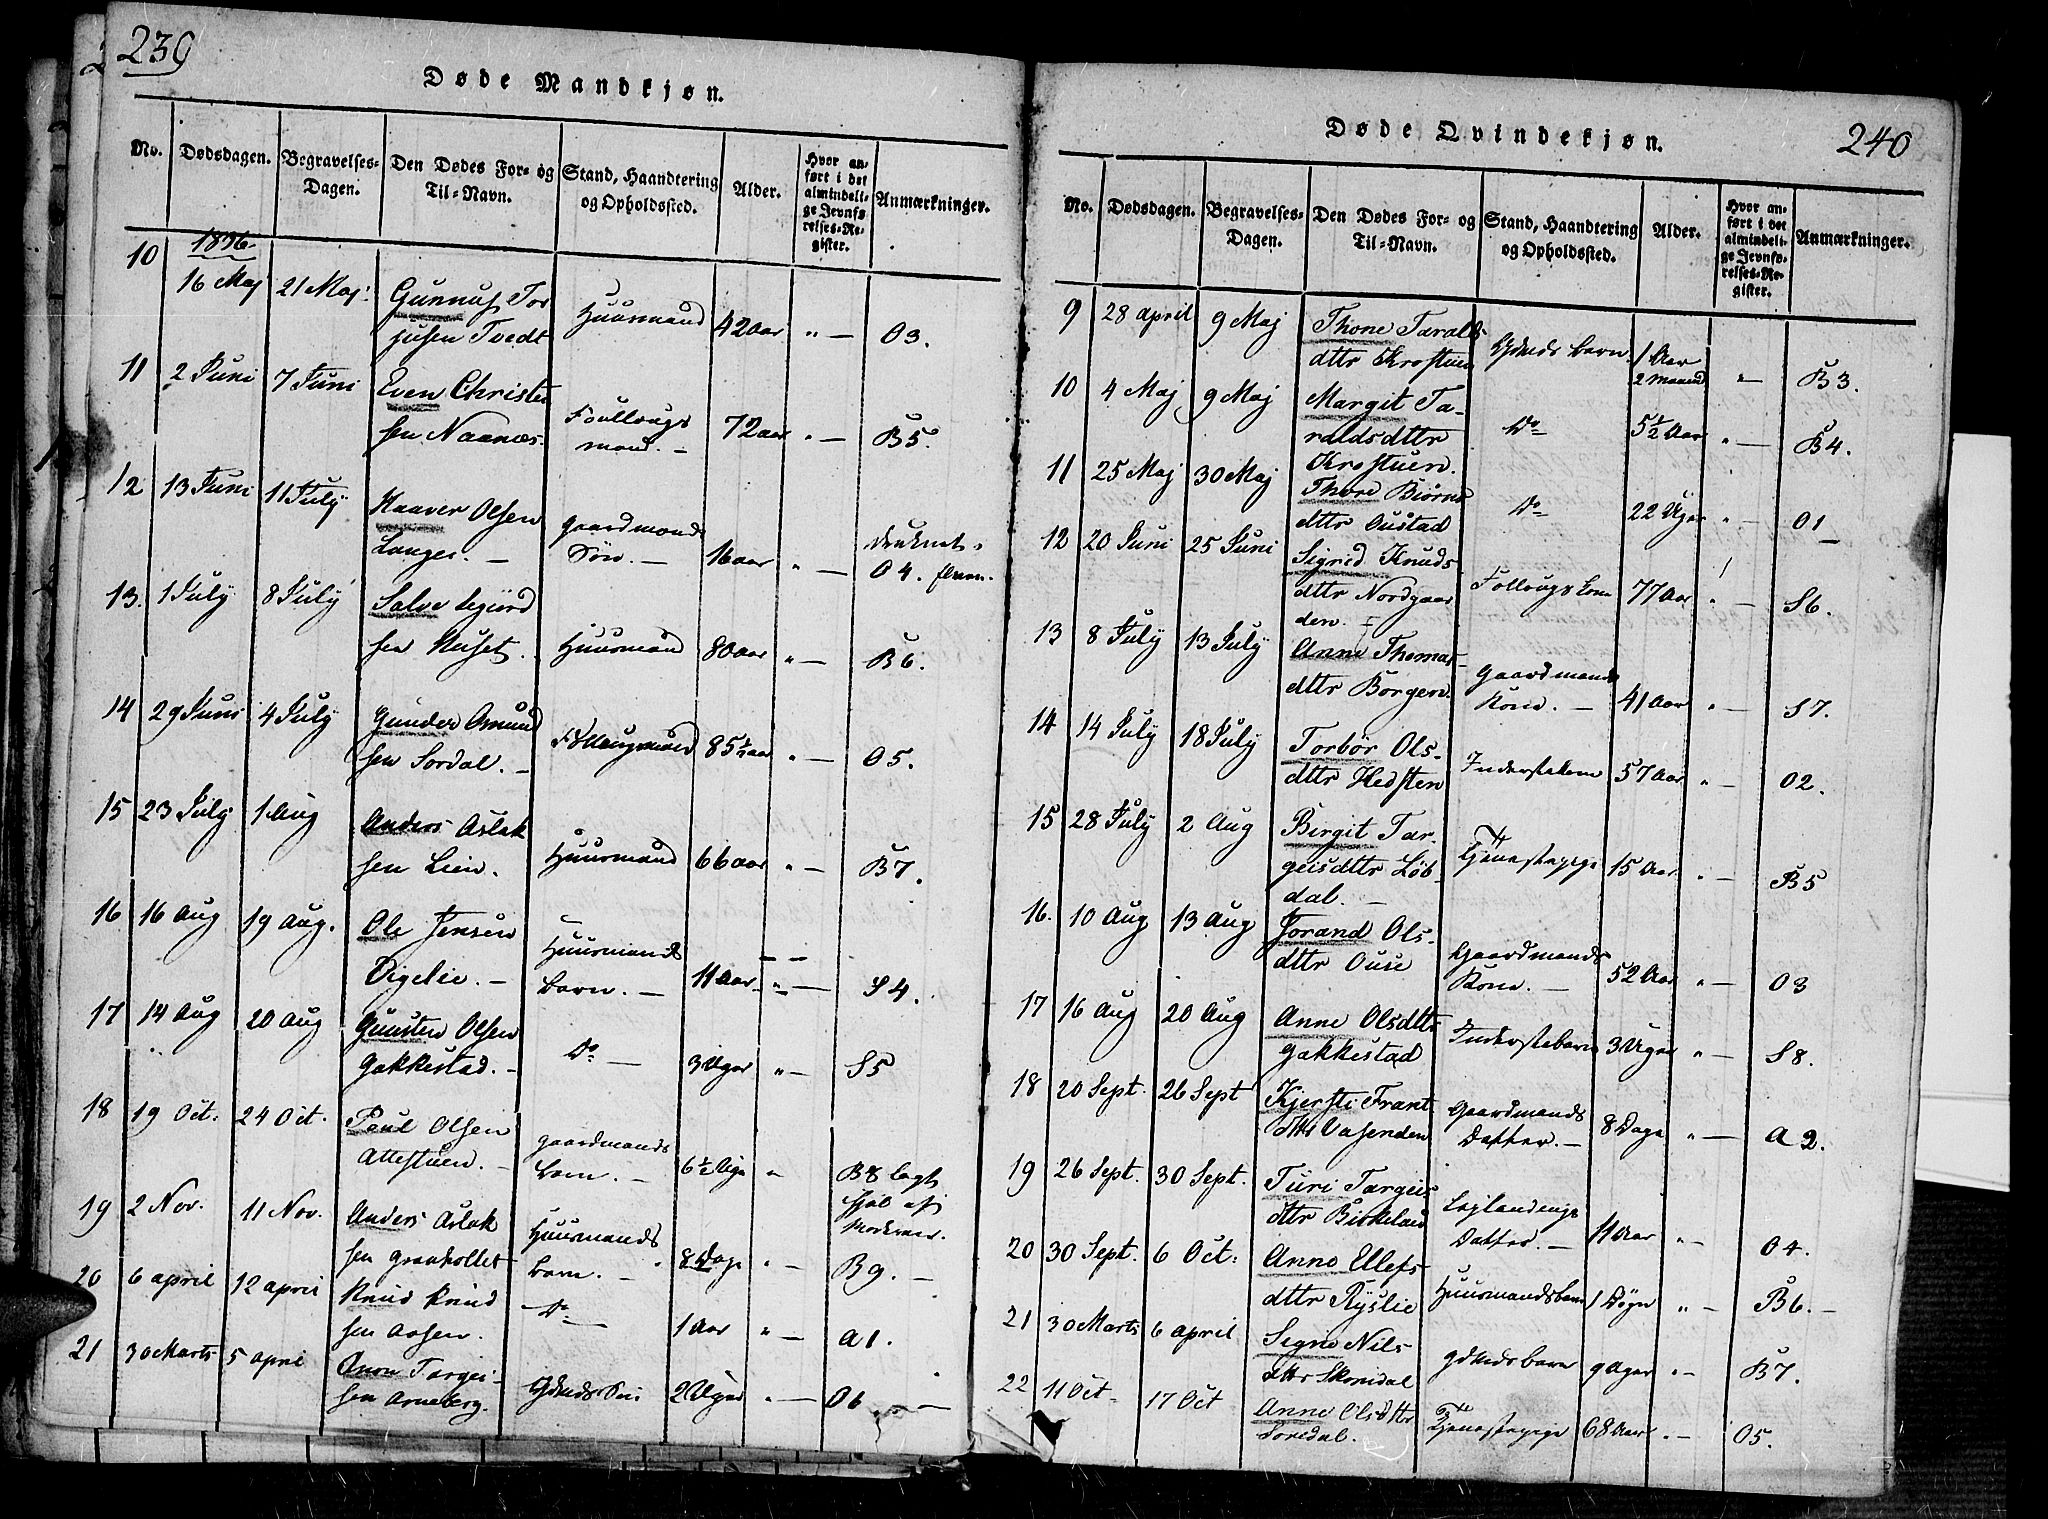 239
Døde Mandkjøn.
No. Dødsdagen. Begravelses-Dagen. Den Dødes For- og Til-Navn. Stand, Haandtering og Opholdssted. Alder. Hvor anført i det almindelige Jevnførelses-Register. Anmærkninger.
1836
10 16 Maj 21 Maj Gunnuf Tor
jusen Tvedt Huusmand 42 Aar " — O3.
11 2 Juni 7 Juni Even Christen
sen Naanæs. Foullougs
mand. — 72 aar " — B5.
12 13 Juni 11 July Haaver Olsen
Langei. — gaardmands
Søn. — 16 aar " — druknet
O4.
13. 1 July 8 July Salve Sigurd
sen Kuset. Huusmand 80 aar " — B6.
14 29 Juni 4 July Gunder Omund
sen Sordal. — 85½ aar " — O5.
15 23 July 1 Aug Anders Aslak
sen Lien. Huusmand 66 aar " — B7.
16 16 Aug 19 Aug. Ole Jensen
Vigelie. — Huusmands
barn. — 11 Aar " — S4.
17 14 Aug 20 Aug Gunsten Olsen
Gakkestad. — Do — 3 Uger " — S5
18 19 Oct. 24 Oct. Paul Olsen
Attestuen. — gaardmands
barn. — 6½ Uge " B8 lagt
ihjel af
Moderen.
19 2 Nov. 11 Nov. Anders Aslak
sen Huusmands
barn. — 8 Dage " — B9. —
20 6 april 12 april Knud Knud
sen Aasen. Do — 1 Aar " — A1.
21 30 Marts 5 april Targei-
sen Arneberg. 2 Uger " — O6
240
Døde Qvindekjøn.
No. Dødsdagen. Begravelses-Dagen. Den Dødes For- og Til-Navn. Stand, Haandtering og Opholdssted. Alder. Hvor anført i det almindelige Jevnførelses-Register. Anmærkninger.
9 28 april 9 Maj Thone Taralds
dttr Krostuen barn. 1 Aar
2 maaned " — B3.
10 4 Maj 9 Maj Margit Ta-
raldsdttr
Krostuen. Do 5½ Aar " — B4.
11 25 Maj 30 Maj Thore Biørns
dttr Oustad Do 22 Uger " — O1
12 20 Juni 25 Juni Sigrid Knuds
dttr Nordgaar
den. — Follougskone 77 Aar " — S6.
13 8 July 13 July Anne Thomas-
dttr Borgen. gaardmands
Kone. — 41 Aar " — S7.
14 14 July 18 July Torbør Ols-
dttr Hedsten Inderstekone 57 Aar " — O2.
15 28 July 2 Aug Birgit Tar
geisdttr Løb-
dal. — Tjenestepige 15 Aar " — B5
16. 10 Aug 13 Aug Jorand Ols-
dttr Ouse Gaardmands
Kone. — 52 Aar " — O3
17 16 Aug 20 Aug Anne Olsdttr
Gakkestad Inderstebarn 3 Uger " — S8.
18 20 Sept. 26 Sept Kjersti Frant
dttr Vasenden Gaardmands
Datter. — 8 Dage " — A2.
19 26 Sept. 30 Sept. Turi Targeis
dttr Birkeland
Datter. — 11 Aar " — O4.
20 30 Sept. 6 Oct. Anne Ellefs
dttr Ryslie Huusmandsbarn 1 Døgn " — B6. —
21 30 Marts 6 april Signe Nils
dttr Skomdal barn 9 Uger " — B7.
22 11 Oct. 17 Oct Anne Olsdttr
Soredal. Tjenestepige 68 Aar " — O5.